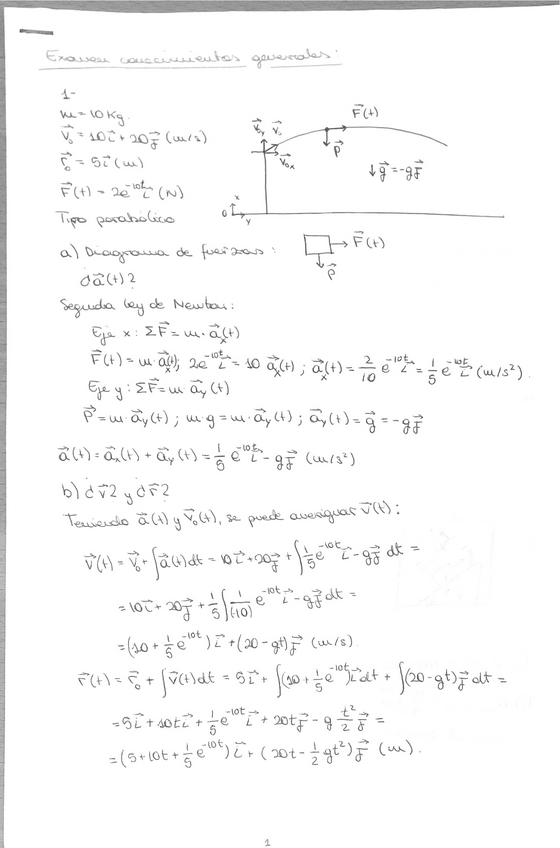 Examen conocimientos generales:
1-
m = 10 Kg.
v⃗₀ = 10i⃗ + 20j⃗ (m/s)
r⃗₀ = 5i⃗ (m)
F⃗(t) = 2e^(-10t) i⃗ (N)
Tipo parabólico
F⃗(t)
v⃗y v⃗₀
v⃗₀x
P⃗
g⃗ = -gj⃗
x
0
y
a) Diagrama de fuerzas:
F⃗(t)
P⃗
¿a⃗(t)?
Segunda ley de Newton:
Eje x: ΣF⃗ = m·a⃗x(t)
F⃗(t) = m·a⃗x(t); 2e^(-10t) i⃗ = 10 a⃗x(t); a⃗x(t) = 2/10 e^(-10t) i⃗ = 1/5 e^(-10t) i⃗ (m/s²).
Eje y: ΣF⃗ = m·a⃗y(t)
P⃗ = m·a⃗y(t); m·g = m·a⃗y(t); a⃗y(t) = g⃗ = -gj⃗
a⃗(t) = a⃗x(t) + a⃗y(t) = 1/5 e^(-10t) i⃗ - gj⃗ (m/s²)
b) ¿v⃗? y ¿r⃗?
Teniendo a⃗(t) y v⃗₀(t), se puede averiguar v⃗(t):
v⃗(t) = v⃗₀ + ∫a⃗(t)dt = 10i⃗ + 20j⃗ + ∫1/5 e^(-10t) i⃗ - gj⃗ dt =
= 10i⃗ + 20j⃗ + 1/5 ∫ 1/(-10) e^(-10t) i⃗ - gj⃗ dt =
= (10 + 1/5 e^(-10t)) i⃗ + (20 - gt)j⃗ (m/s)
r⃗(t) = r⃗₀ + ∫v⃗(t)dt = 5i⃗ + ∫(10 + 1/5 e^(-10t))i⃗ dt + ∫(20 - gt)j⃗ dt =
= 5i⃗ + 10ti⃗ + 1/5 e^(-10t) i⃗ + 20tj⃗ - g t²/2 j⃗ =
= (5 + 10t + 1/5 e^(-10t)) i⃗ + (20t - 1/2 gt²)j⃗ (m).
1